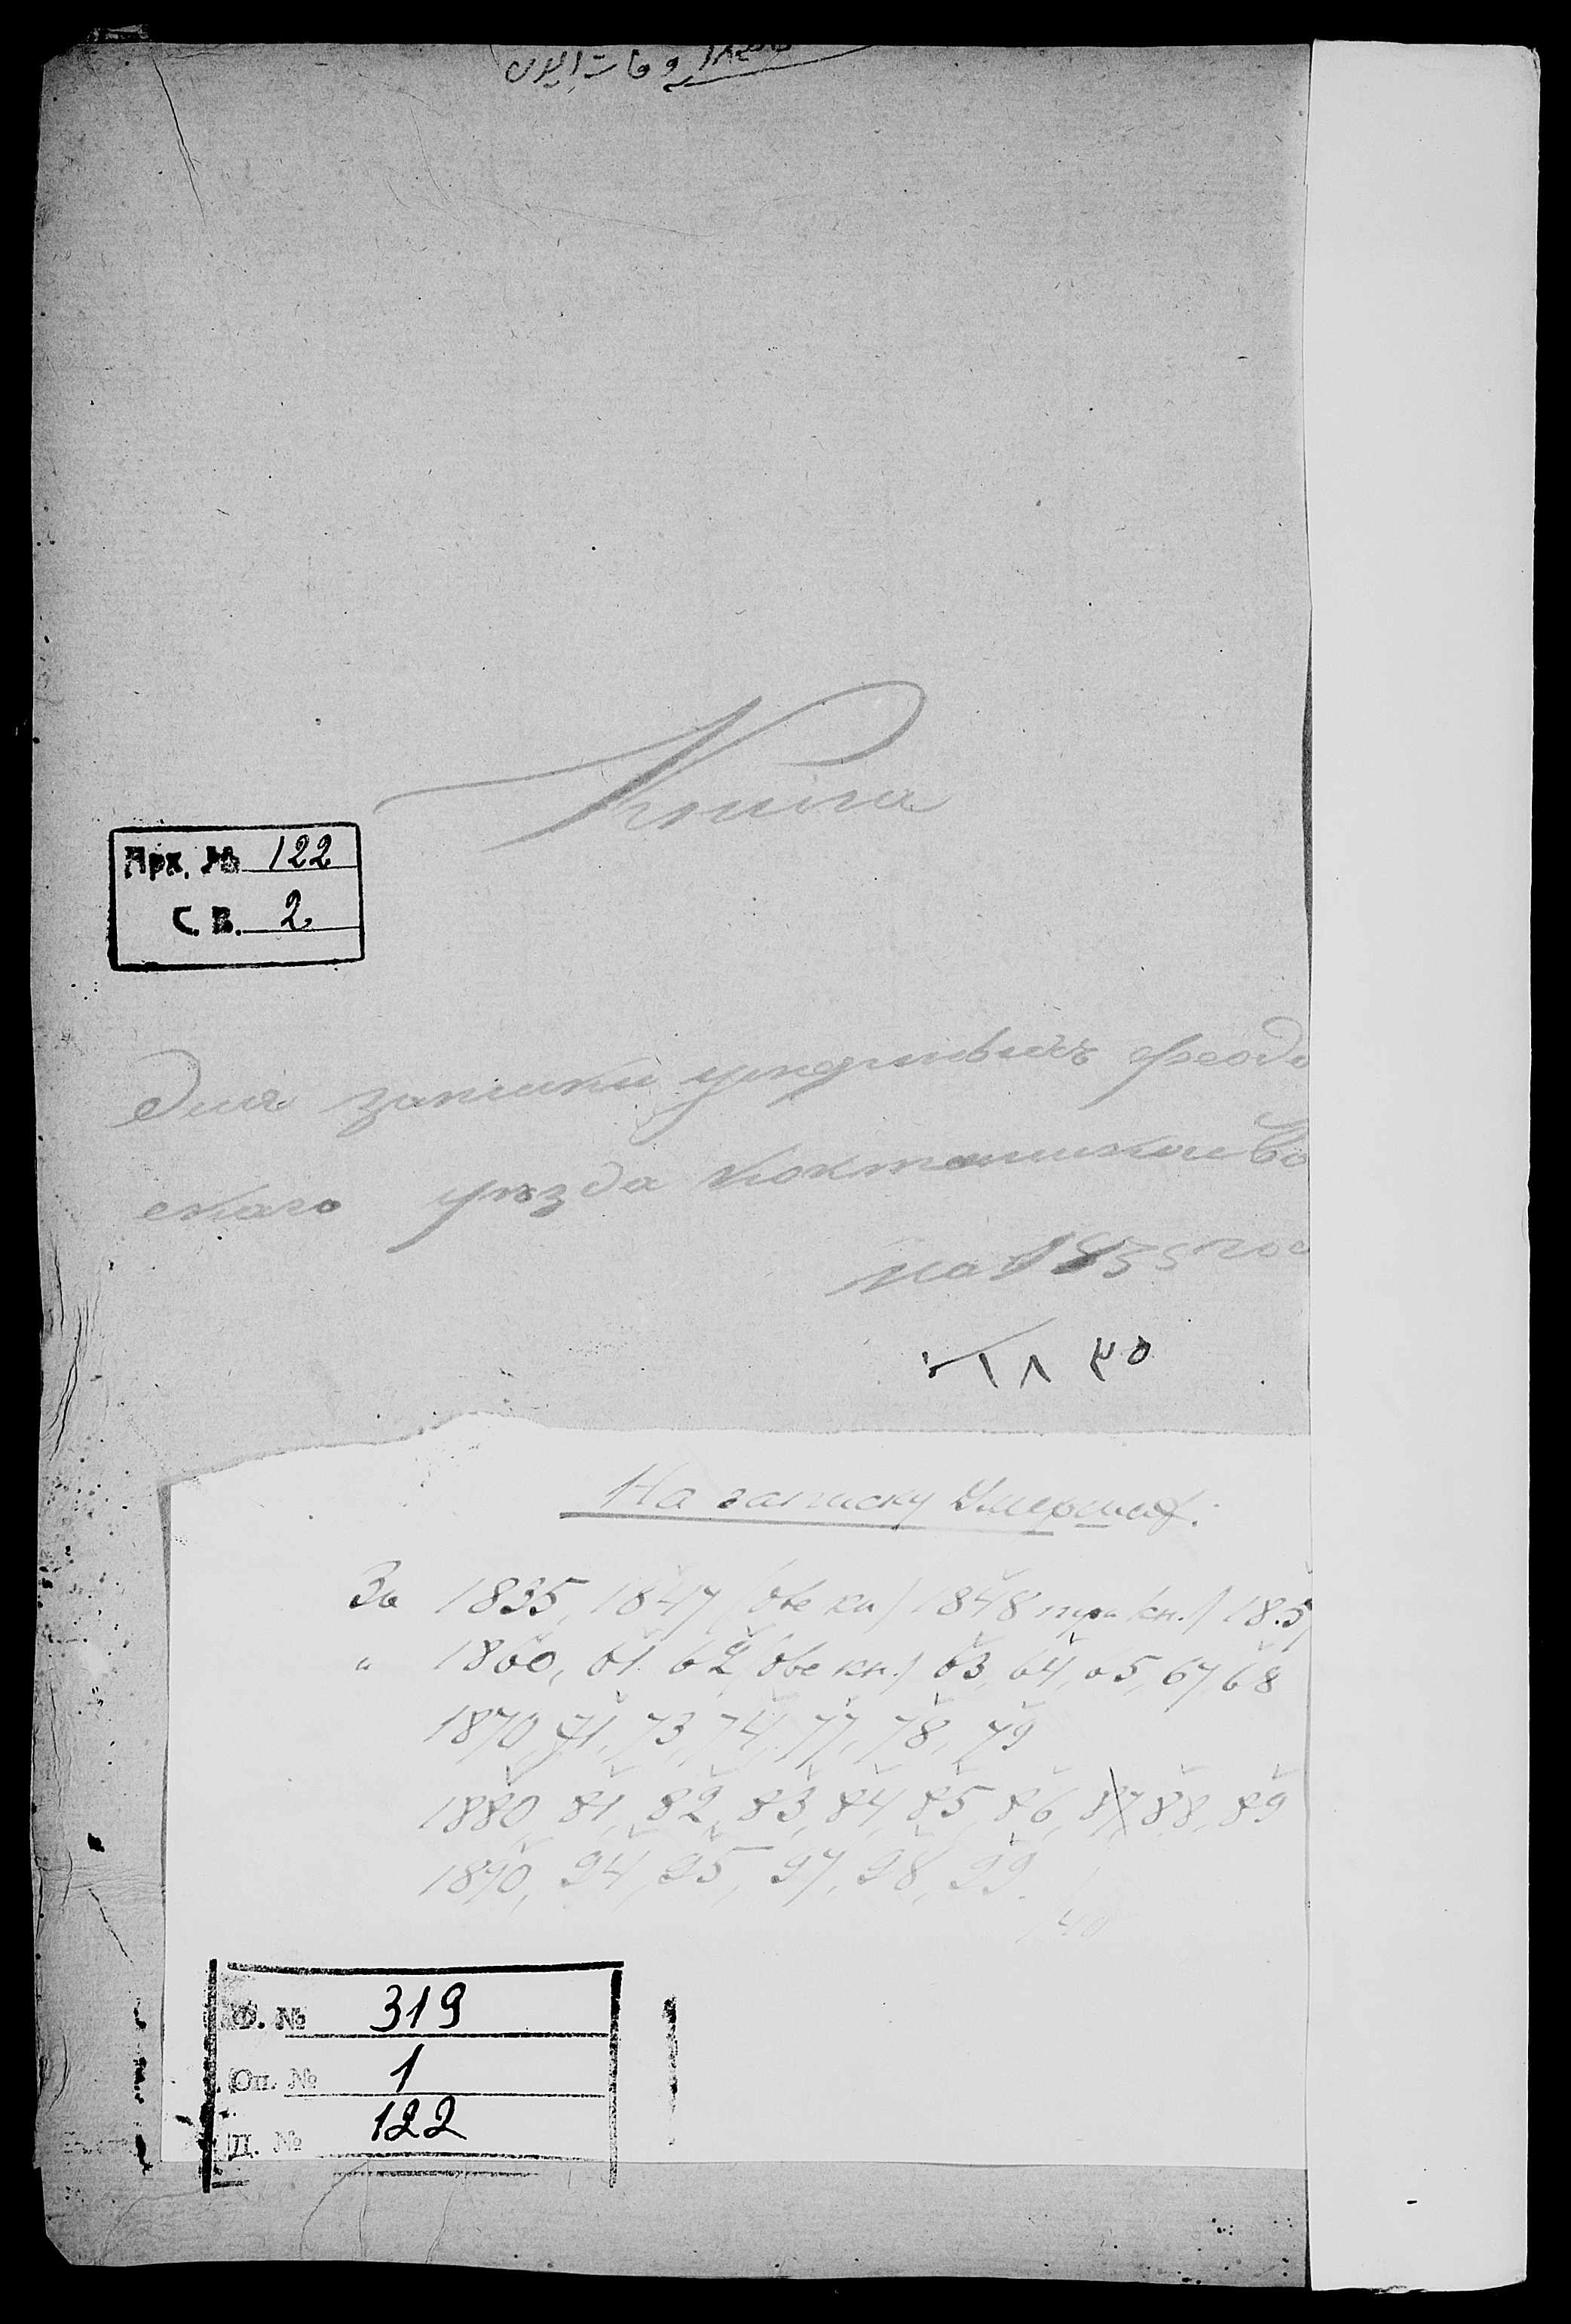 Книга
Арх. № 122
С. В. 2
Для записки умершихъ Феодо
скаго уѣзда
на 1835 го
١٨٣٥
На записку Умерших:
За 1835, 1847 (две кн) 1848 три кн.) 18.5
" 1860, 61, 62 (две кн.) 63, 64, 65, 67, 68
1870, 71, 73, 74, 77, 78, 79
1880, 81, 82, 83, 84, 85, 86, 87, 88, 89
1890, 94, 95, 97, 98, 99.
Ф. № 319
Оп. № 1
Д. № 122